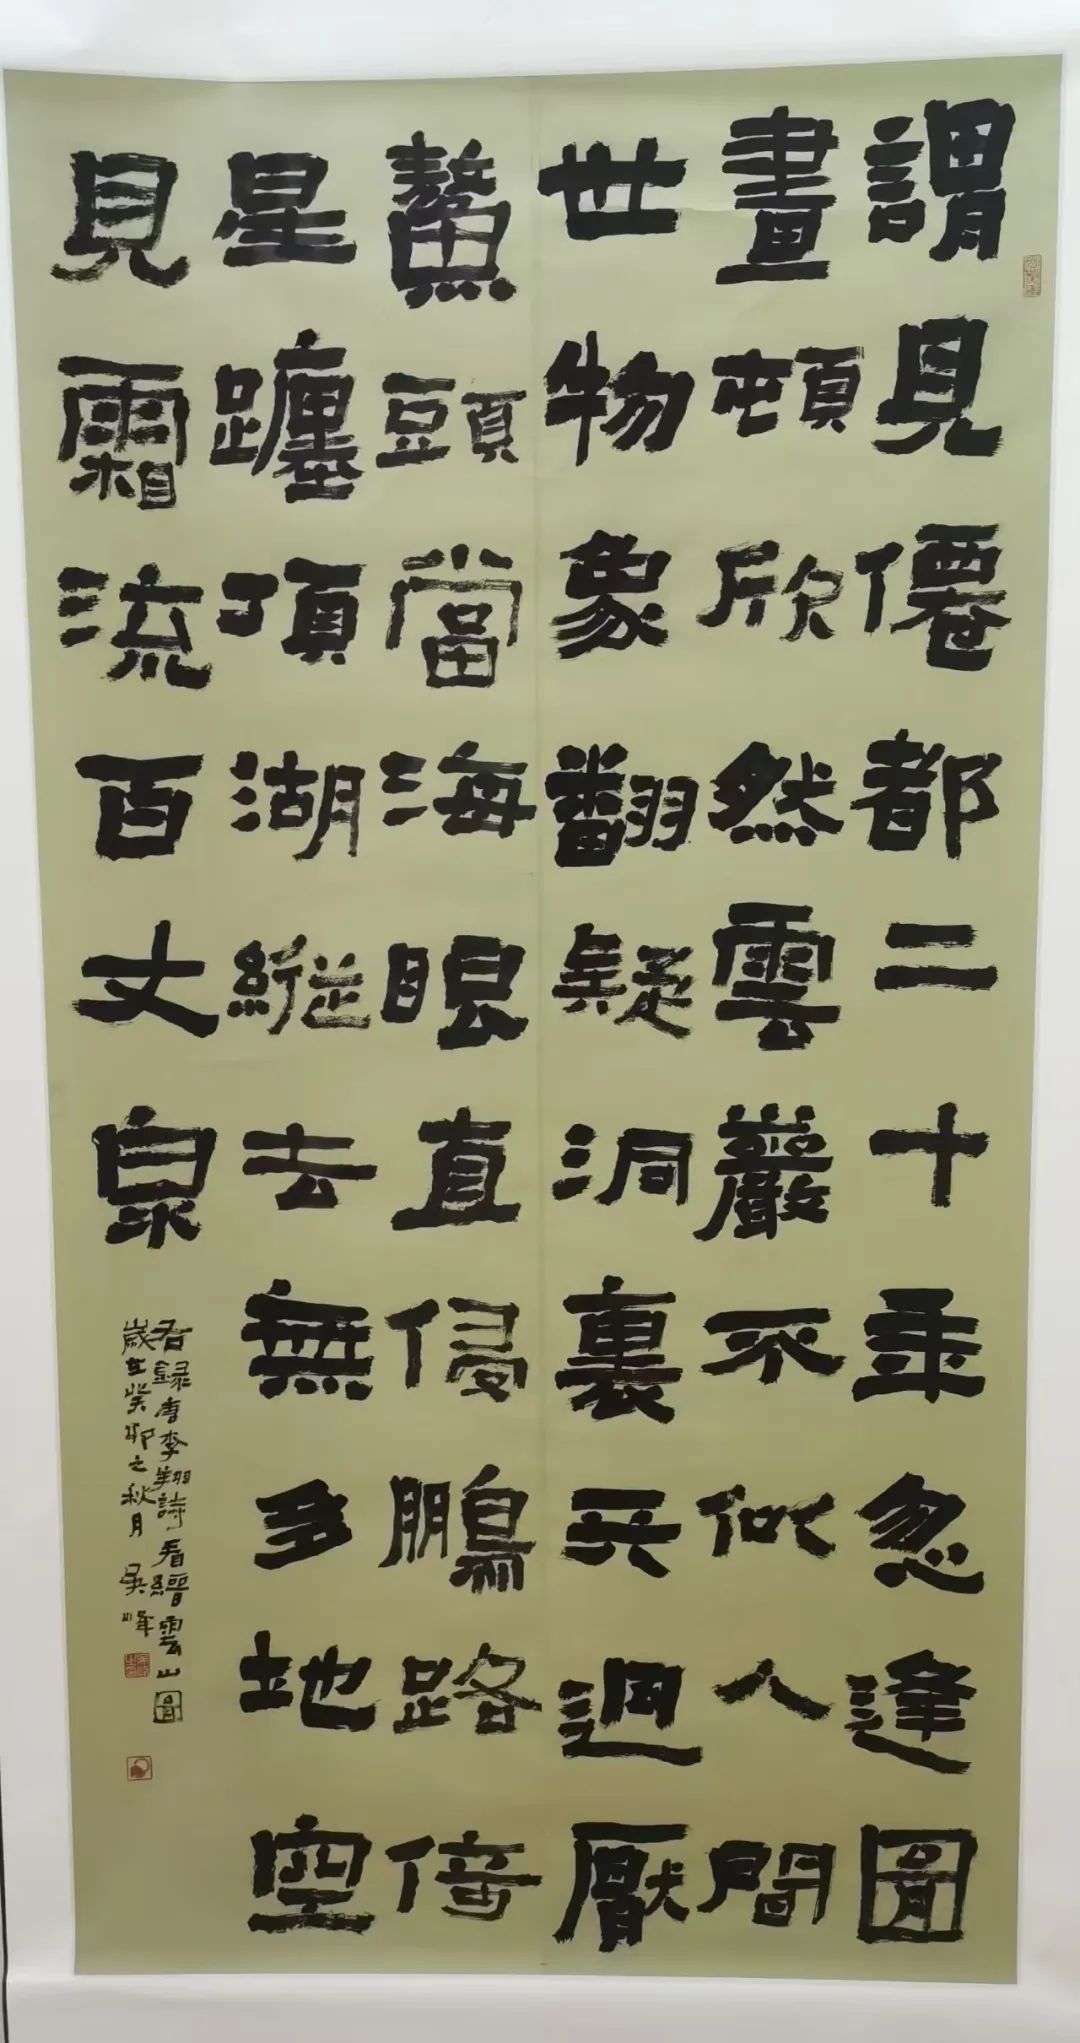 謂見僊都二十年忽逢圖
畫頓欣然雲巖不似人間
世物象翻疑洞裏天逈厭
鰲頭當海眼直侵鵬路倚
星躔項湖縱去無多地空
見霜流百丈泉
右録唐李翔詩看縉雲山圖
歲在癸卯之秋月 吳峰